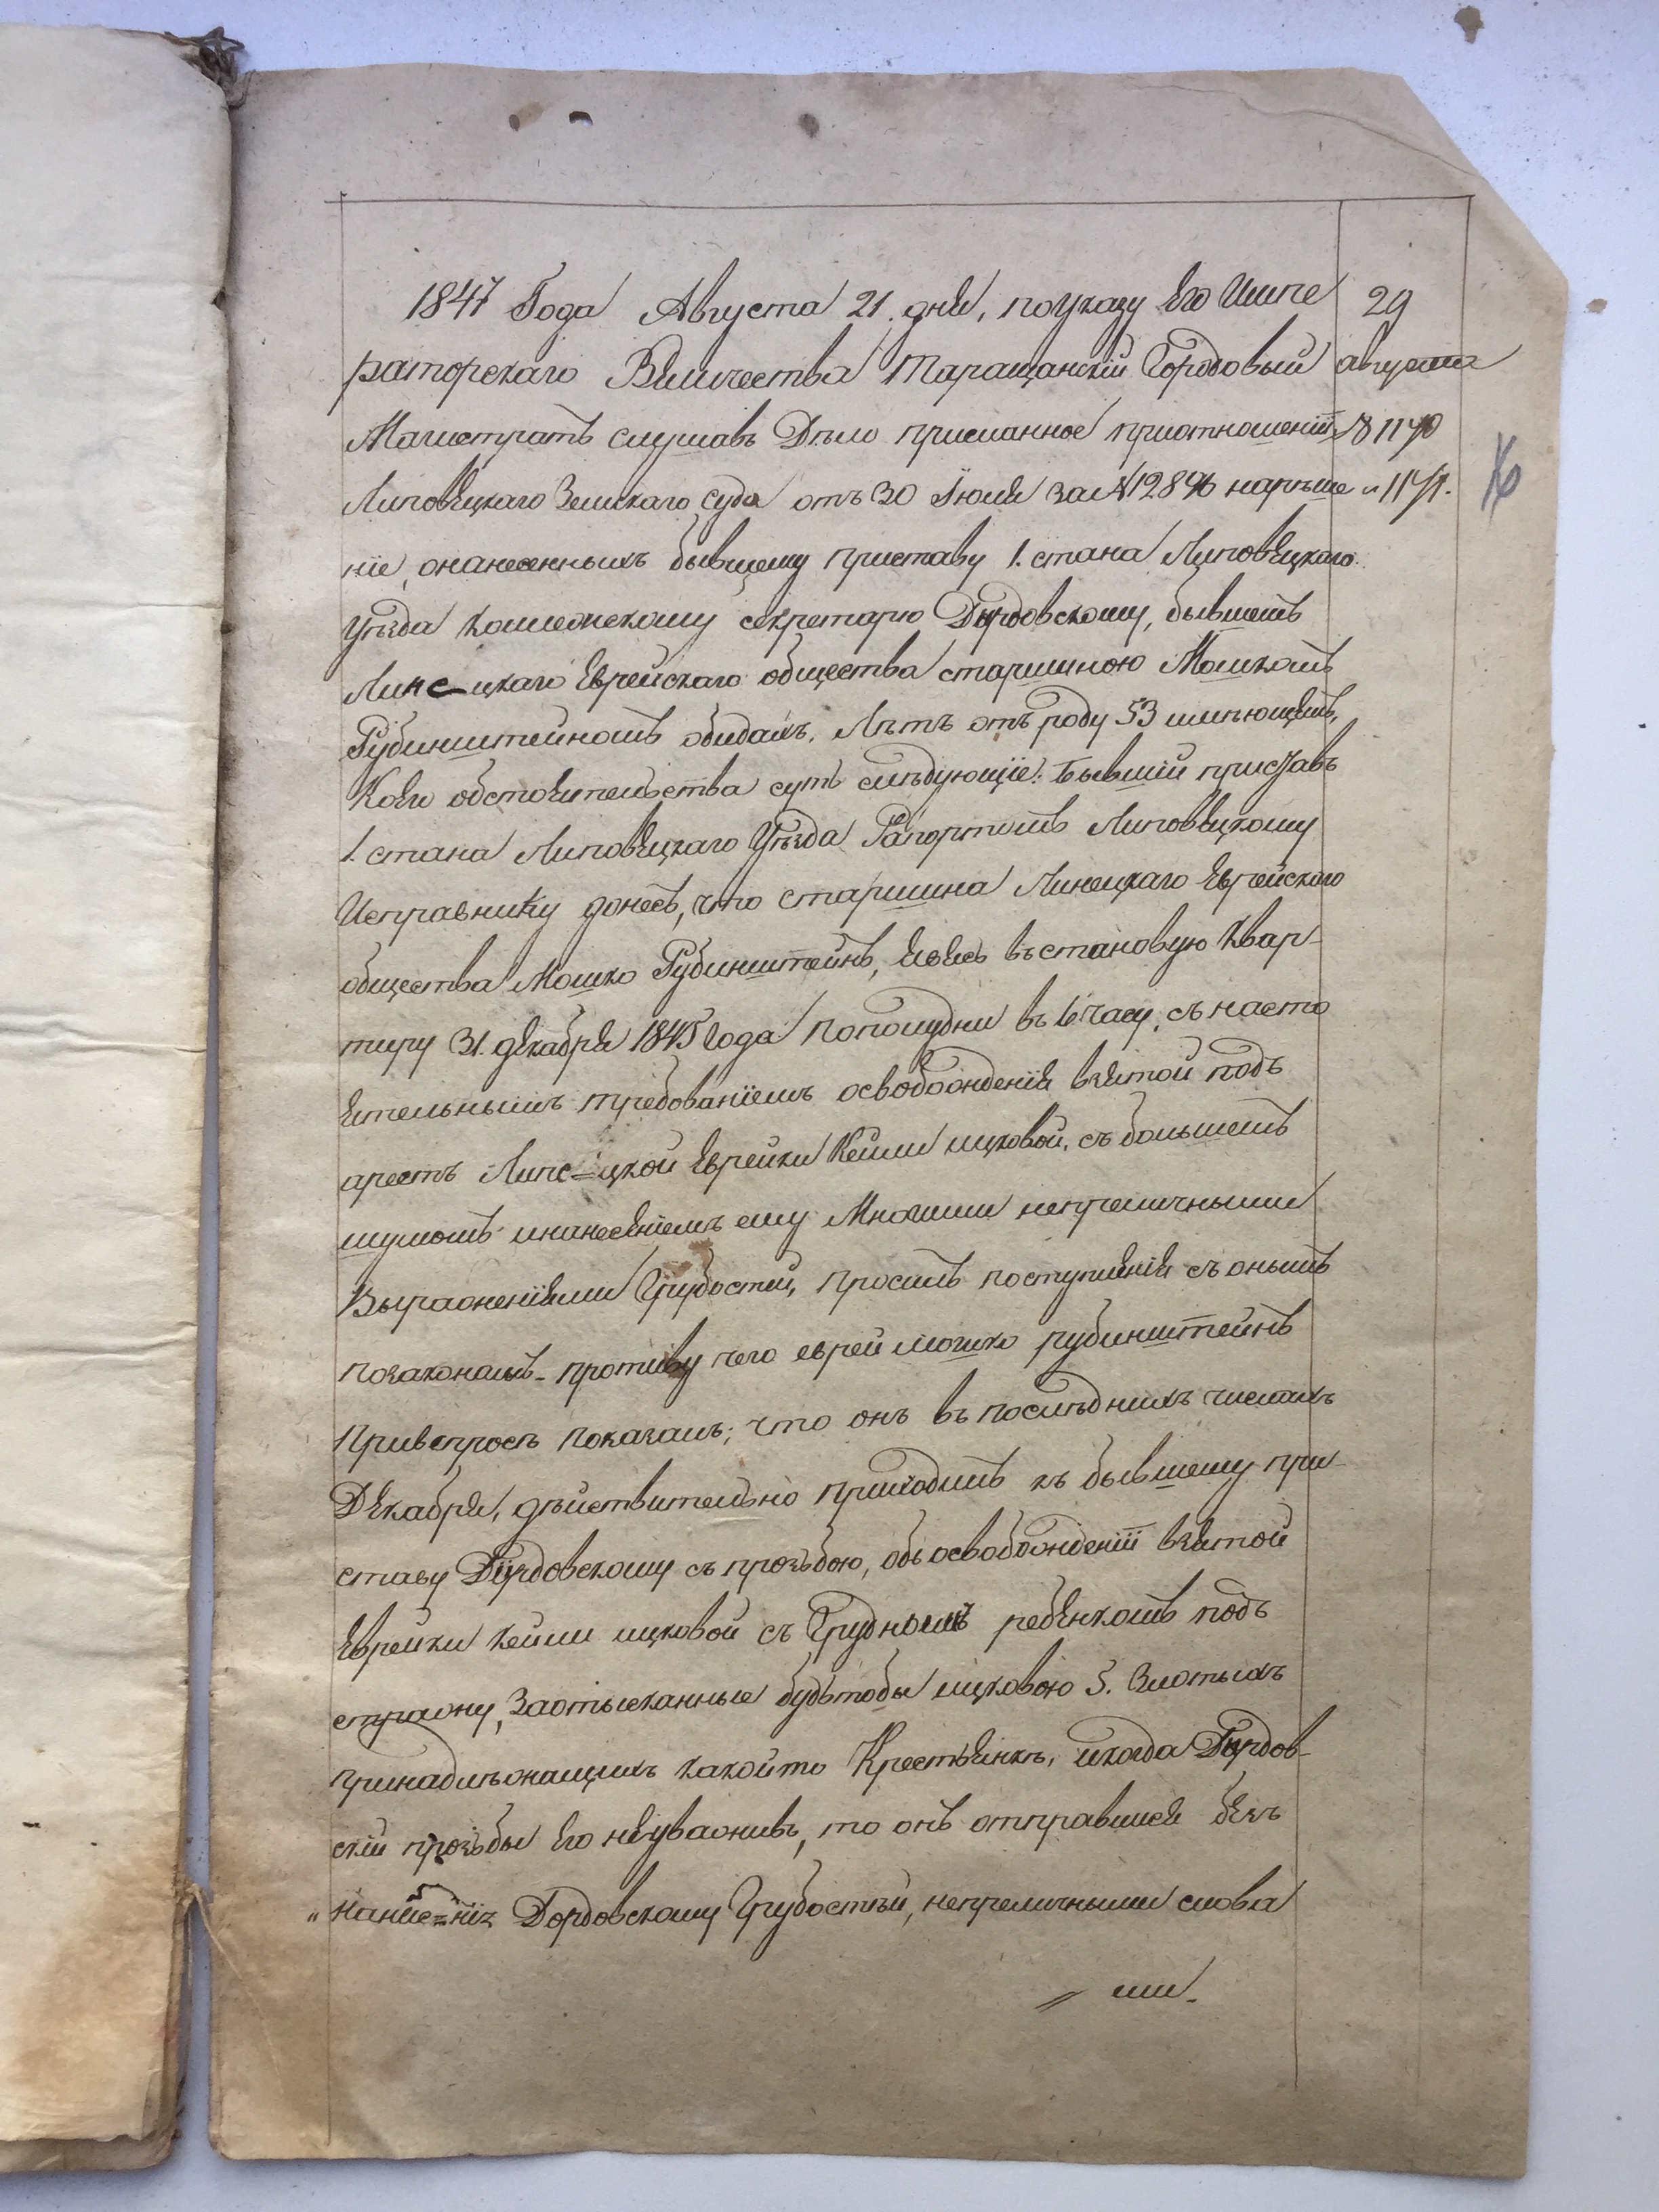 1847 Года Августа 21. дня, поуказу Его Импе
29
раторскаго Величества Таращанскій Городовый
августа
Магистратъ слушавъ Дѣло присланное приотношеніи
№ 1170
Липовецкаго Земскаго Суда отъ 30 Іюля за № 12896 нарѣше
и 1171.
ніе, онанесенныхъ бывшему приставу 1. стана Липовецкаго
уѣзда колежскому секретарю Дырдовскому, бывшемъ
Линецкаго Еврейскаго общества старшиною Мошкомъ
Рубинштейномъ обидахъ. Лѣтъ отъ роду 53 имѣющемъ,
Коего обстоятельства суть слѣдующіе: Бывшій приставъ
1. стана Липовецкаго Уѣзда Рапортомъ Липовецкому
Исправнику донесъ, что старшина Линецкаго Еврейскаго
общества Мошко Рубинштейнъ, явясь въ становую Квар-
тиру 31. декабря 1845 Года пополудни въ 6 часу, съ насто
ятельнымъ требованіемъ освобожденія взятой подъ
арестъ Линецкой Еврейки Кейли ицковой, съ большемъ
шумомъ инанесеніемъ ему Многими неприличными
Выраженіями Грубостей, просилъ поступленія съ онымъ
позаконамъ - противу чего еврей мошко рубинштейнъ
Привспросѣ показалъ; что онъ въ послѣднихъ числахъ
Декабря, дѣйствительно приходилъ къ бывшему при-
ставу Дырдовскому съ прозьбою, объ освобожденіи взятой
Еврейки Кейли ицковой съ Груднымъ ребенкомъ подъ
стражу, Заотысканные будьтобы ицковою 5. Злотыхъ
принадлежащихъ какойто Крестьянкѣ, икогда Дырдов-
скій прозьбы Его неуваживъ, то онъ отправился безъ
Дордовскому Грубостей, неприличными слова
ми.